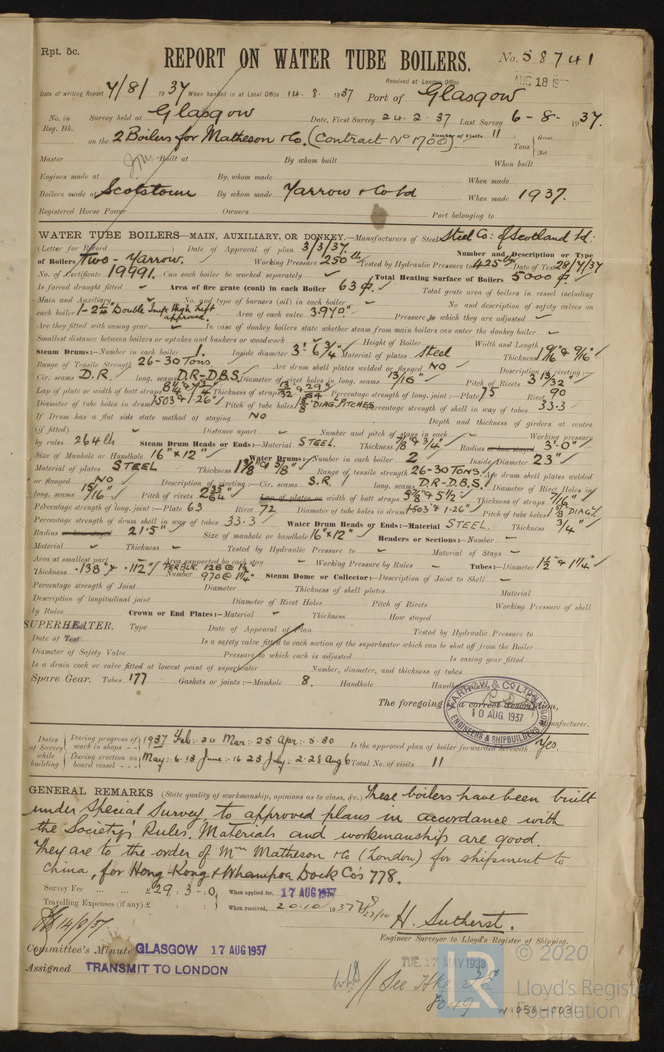 Rpt. 5c.
REPORT ON WATER TUBE BOILERS.
No. 58741
Required at London Office AUG 18
Date of writing Report 7/8/1937 When handed in at Local Office 14.8.1937 Port of Glasgow
No. in Survey held at Glasgow Date, First Survey 24.2.37 Last Survey 6-8-1937.
Reg. Bk. on the 2 Boilers for Matheson & Co. (Contract No 1700) Number of Visits 11 Gross Tons Net
Master Built at By whom built When built
Engines made at By whom made When made
Boilers made at Scotstoun By whom made Yarrow & Co Ltd When made 1937.
Registered Horse Power Owners Port belonging to
WATER TUBE BOILERS—MAIN, AUXILIARY, OR DONKEY.—Manufacturers of Steel Steel Co: of Scotland Ld:
(Letter for Record ) Date of Approval of plan 3/3/37. Number and Description or Type
of Boilers Two - Yarrow. Working Pressure 250 lb Tested by Hydraulic Pressure to 425 Date of Test 28/7/37
No. of Certificate 19991. Can each boiler be worked separately ✓ Total Heating Surface of Boilers 5000
Is forced draught fitted ✓ Area of fire grate (coal) in each Boiler 63 Total grate area of boilers in vessel including
Main and Auxiliary No. and type of burners (oil) in each boiler No. and description of safety valves on
each boiler Double High Lift Area of each valve 3.970" Pressure to which they are adjusted ✓
Are they fitted with easing gear In case of donkey boilers state whether steam from main boilers can enter the donkey boiler
Smallest distance between boilers or uptakes and bunkers or woodwork Height of Boiler Width and Length
Steam Drums:—Number in each boiler 1. Inside diameter 3' 6¾" Material of plates Steel Thickness
Range of Tensile Strength 26-30 Tons Are drum shell plates welded or flanged NO Description of riveting:—
Cir. seams D.R. long. seams D.R-D.B.S. Diameter of rivet holes in long. seams 13/16" Pitch of Rivets
Lap of plate or width of butt straps Thickness of straps Percentage strength of long. joint:—Plate 75 Rivet 90
Diameter of tube holes in drum Pitch of tube holes DIAG. PITCHES Percentage strength of shell in way of tubes 33.3
If Drum has a flat side state method of staying NO Depth and thickness of girders at centre
(if fitted) Distance apart Number and pitch of stays in each Working pressure
by rules 264 lbs Steam Drum Heads or Ends:—Material STEEL. Thickness Radius or how stayed 3'-0"
Size of Manhole or Handhole 16" x 12" Water Drums:—Number in each boiler 2 Inside Diameter 23"
Material of plates STEEL Thickness Range of tensile strength 26-30 TONS Are drum shell plates welded
or flanged NO Description of riveting:—Cir. seams S.R long. seams D.R-D.B.S. Diameter of Rivet Holes in
long. seams 15/16" Pitch of rivets Lap of plates or width of butt straps Thickness of straps 7/16"
Percentage strength of long. joint:—Plate 63 Rivet 72 Diameter of tube holes in drum Pitch of tube holes
Percentage strength of drum shell in way of tubes 33.3 Water Drum Heads or Ends:—Material STEEL. Thickness 3/4"
Radius or how stayed 21.5" Size of manhole or handhole 16" x 12" Headers or Sections:—Number
Material Thickness Tested by Hydraulic Pressure to Material of Stays
Area at smallest part Area supported by each stay Working Pressure by Rules Tubes:—Diameter 1½" & 1¼"
Thickness .138" & .112" Number 970 @ 1¼" Steam Dome or Collector:—Description of Joint to Shell
Percentage strength of Joint Diameter Thickness of shell plates Material
Description of longitudinal joint Diameter of Rivet Holes Pitch of Rivets Working Pressure of shell
by Rules Crown or End Plates:—Material Thickness How stayed
SUPERHEATER. Type Date of Approval of Plan Tested by Hydraulic Pressure to
Date of Test Is a safety valve fitted to each section of the superheater which can be shut off from the Boiler
Diameter of Safety Valve Pressure to which each is adjusted Is easing gear fitted
Is a drain cock or valve fitted at lowest point of superheater Number, diameter, and thickness of tubes
Spare Gear. Tubes 177 Gaskets or joints:—Manhole 8. Handhole Handhole
The foregoing is a correct description,
YARROW & CO LTD GLASGOW
10 AUG 1937
ENGINEERS & SHIPBUILDERS
Manufacturer.
Dates of Survey while building
During progress of work in shops 1937 Feb: 24 Mar: 25 Apr: 5.30 Is the approved plan of boiler forwarded herewith Yes.
During erection on board vessel May: 6.13 June: 16 23 July: 2.28 Aug 6 Total No. of visits 11
GENERAL REMARKS (State quality of workmanship, opinions as to class, &c.) These boilers have been built
under Special Survey to approved plans in accordance with
the Society's Rules. Materials and workmanship are good.
They are to the order of Mess Matheson & Co (London) for shipment to
China, for Hong Kong & Whampoa Dock Co's 778.
Survey Fee £29:3:0. When applied for, 17 AUG 1937
Travelling Expenses (if any) £ : : When received, 20.10.1937
14/8/37
H. Sutherst.
Engineer Surveyor to Lloyd's Register of Shipping.
Committee's Minute GLASGOW 17 AUG 1937
Assigned TRANSMIT TO LONDON
TUE 17 MAY 1938
See Hkg
© 2020
Lloyd's Register
Foundation
W1056-0031